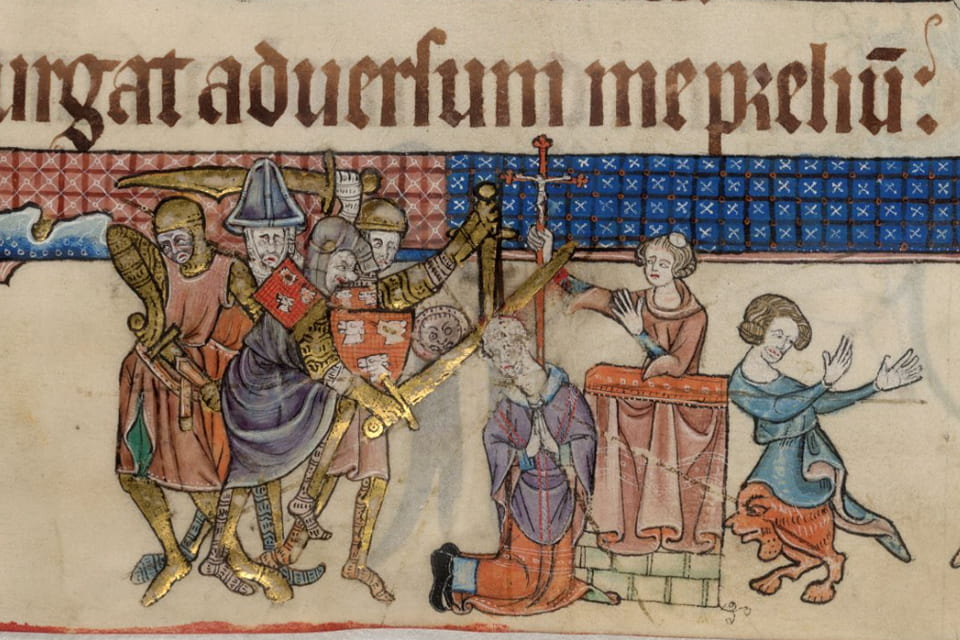 urgat adversum me preliū: